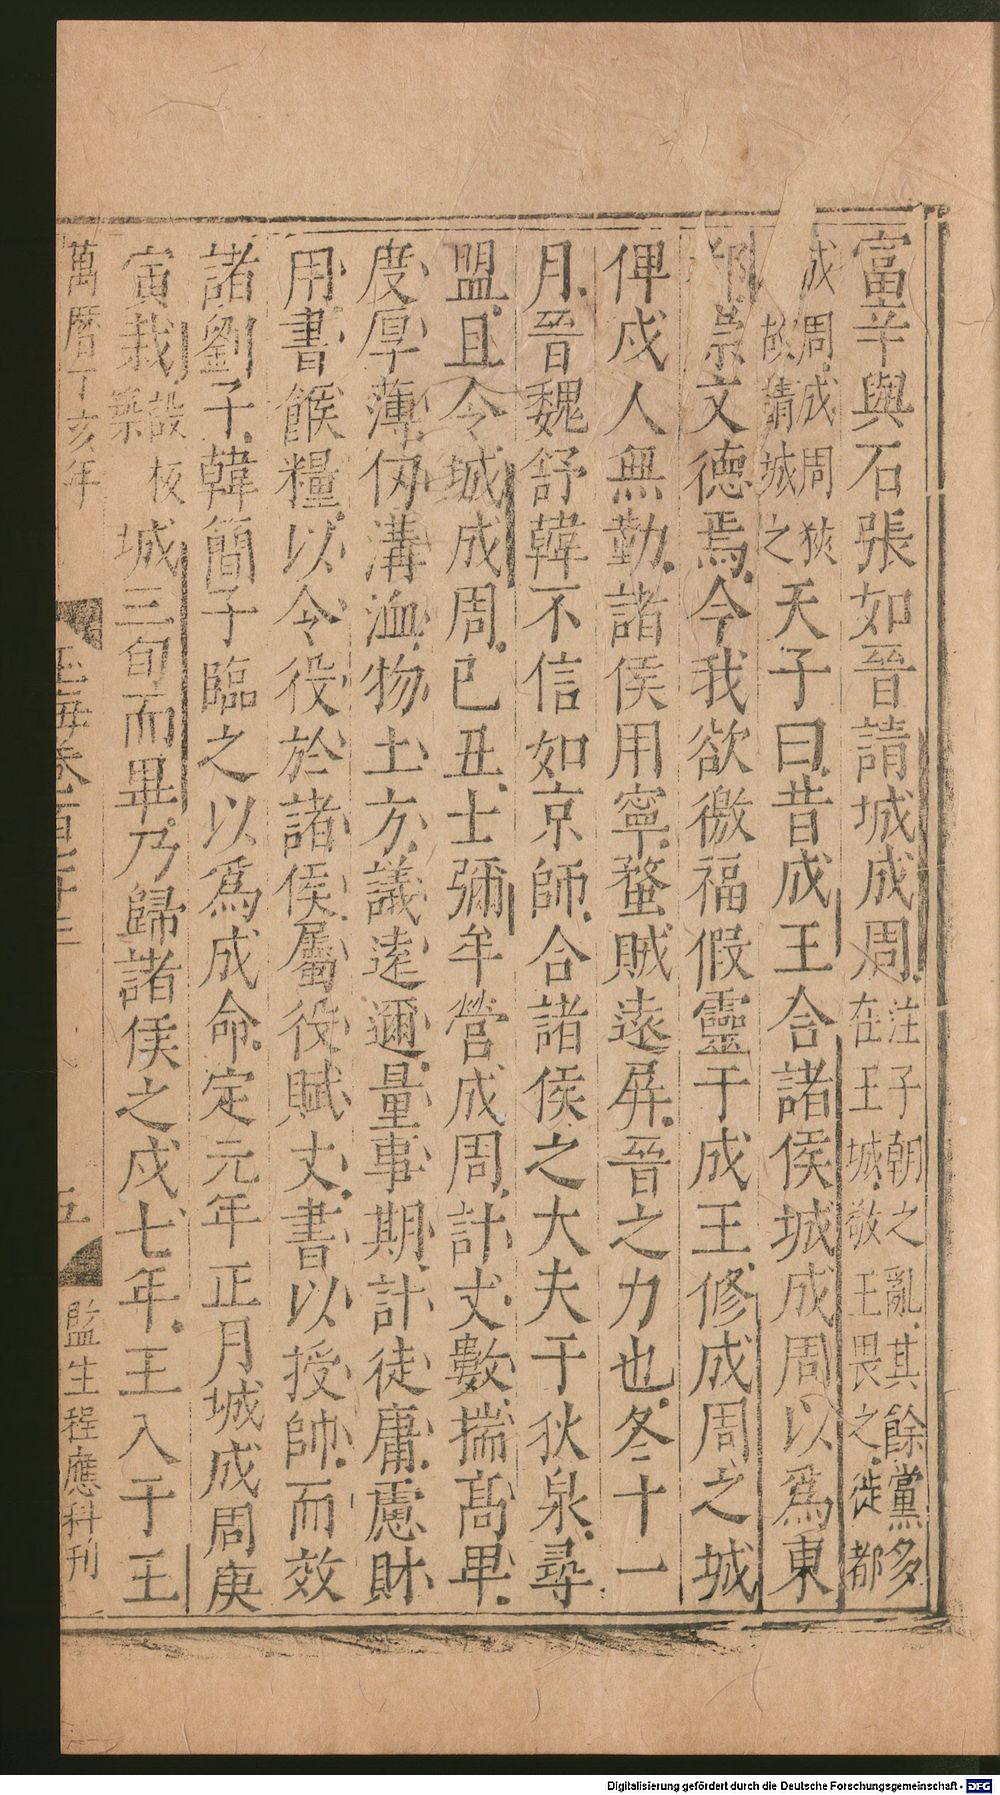 富辛與石張如晉請城成周注子朝之亂其餘黨多在王城敬王畏之徙都
成周成周狹故請城之天子曰昔成王合諸侯城成周以為東
都崇文德焉今我欲徼福假靈于成王修成周之城
俾戍人無勤諸侯用寧蝥賊遠屏晉之力也冬十一
月晉魏舒韓不信如京師合諸侯之大夫于狄泉尋
盟且令城成周己丑士彌牟營成周計丈數揣高卑
度厚薄仞溝洫物土方議遠邇量事期計徒庸慮財
用書餱糧以令役於諸侯屬役賦丈書以授帥而效
諸劉子韓簡子臨之以為成命定元年正月城成周庚
寅栽設板築城三旬而畢乃歸諸侯之戍七年王入于王
萬曆丁亥年
玉海卷百七十三
五
監生程應科刊
Digitalisierung gefördert durch die Deutsche Forschungsgemeinschaft - DFG